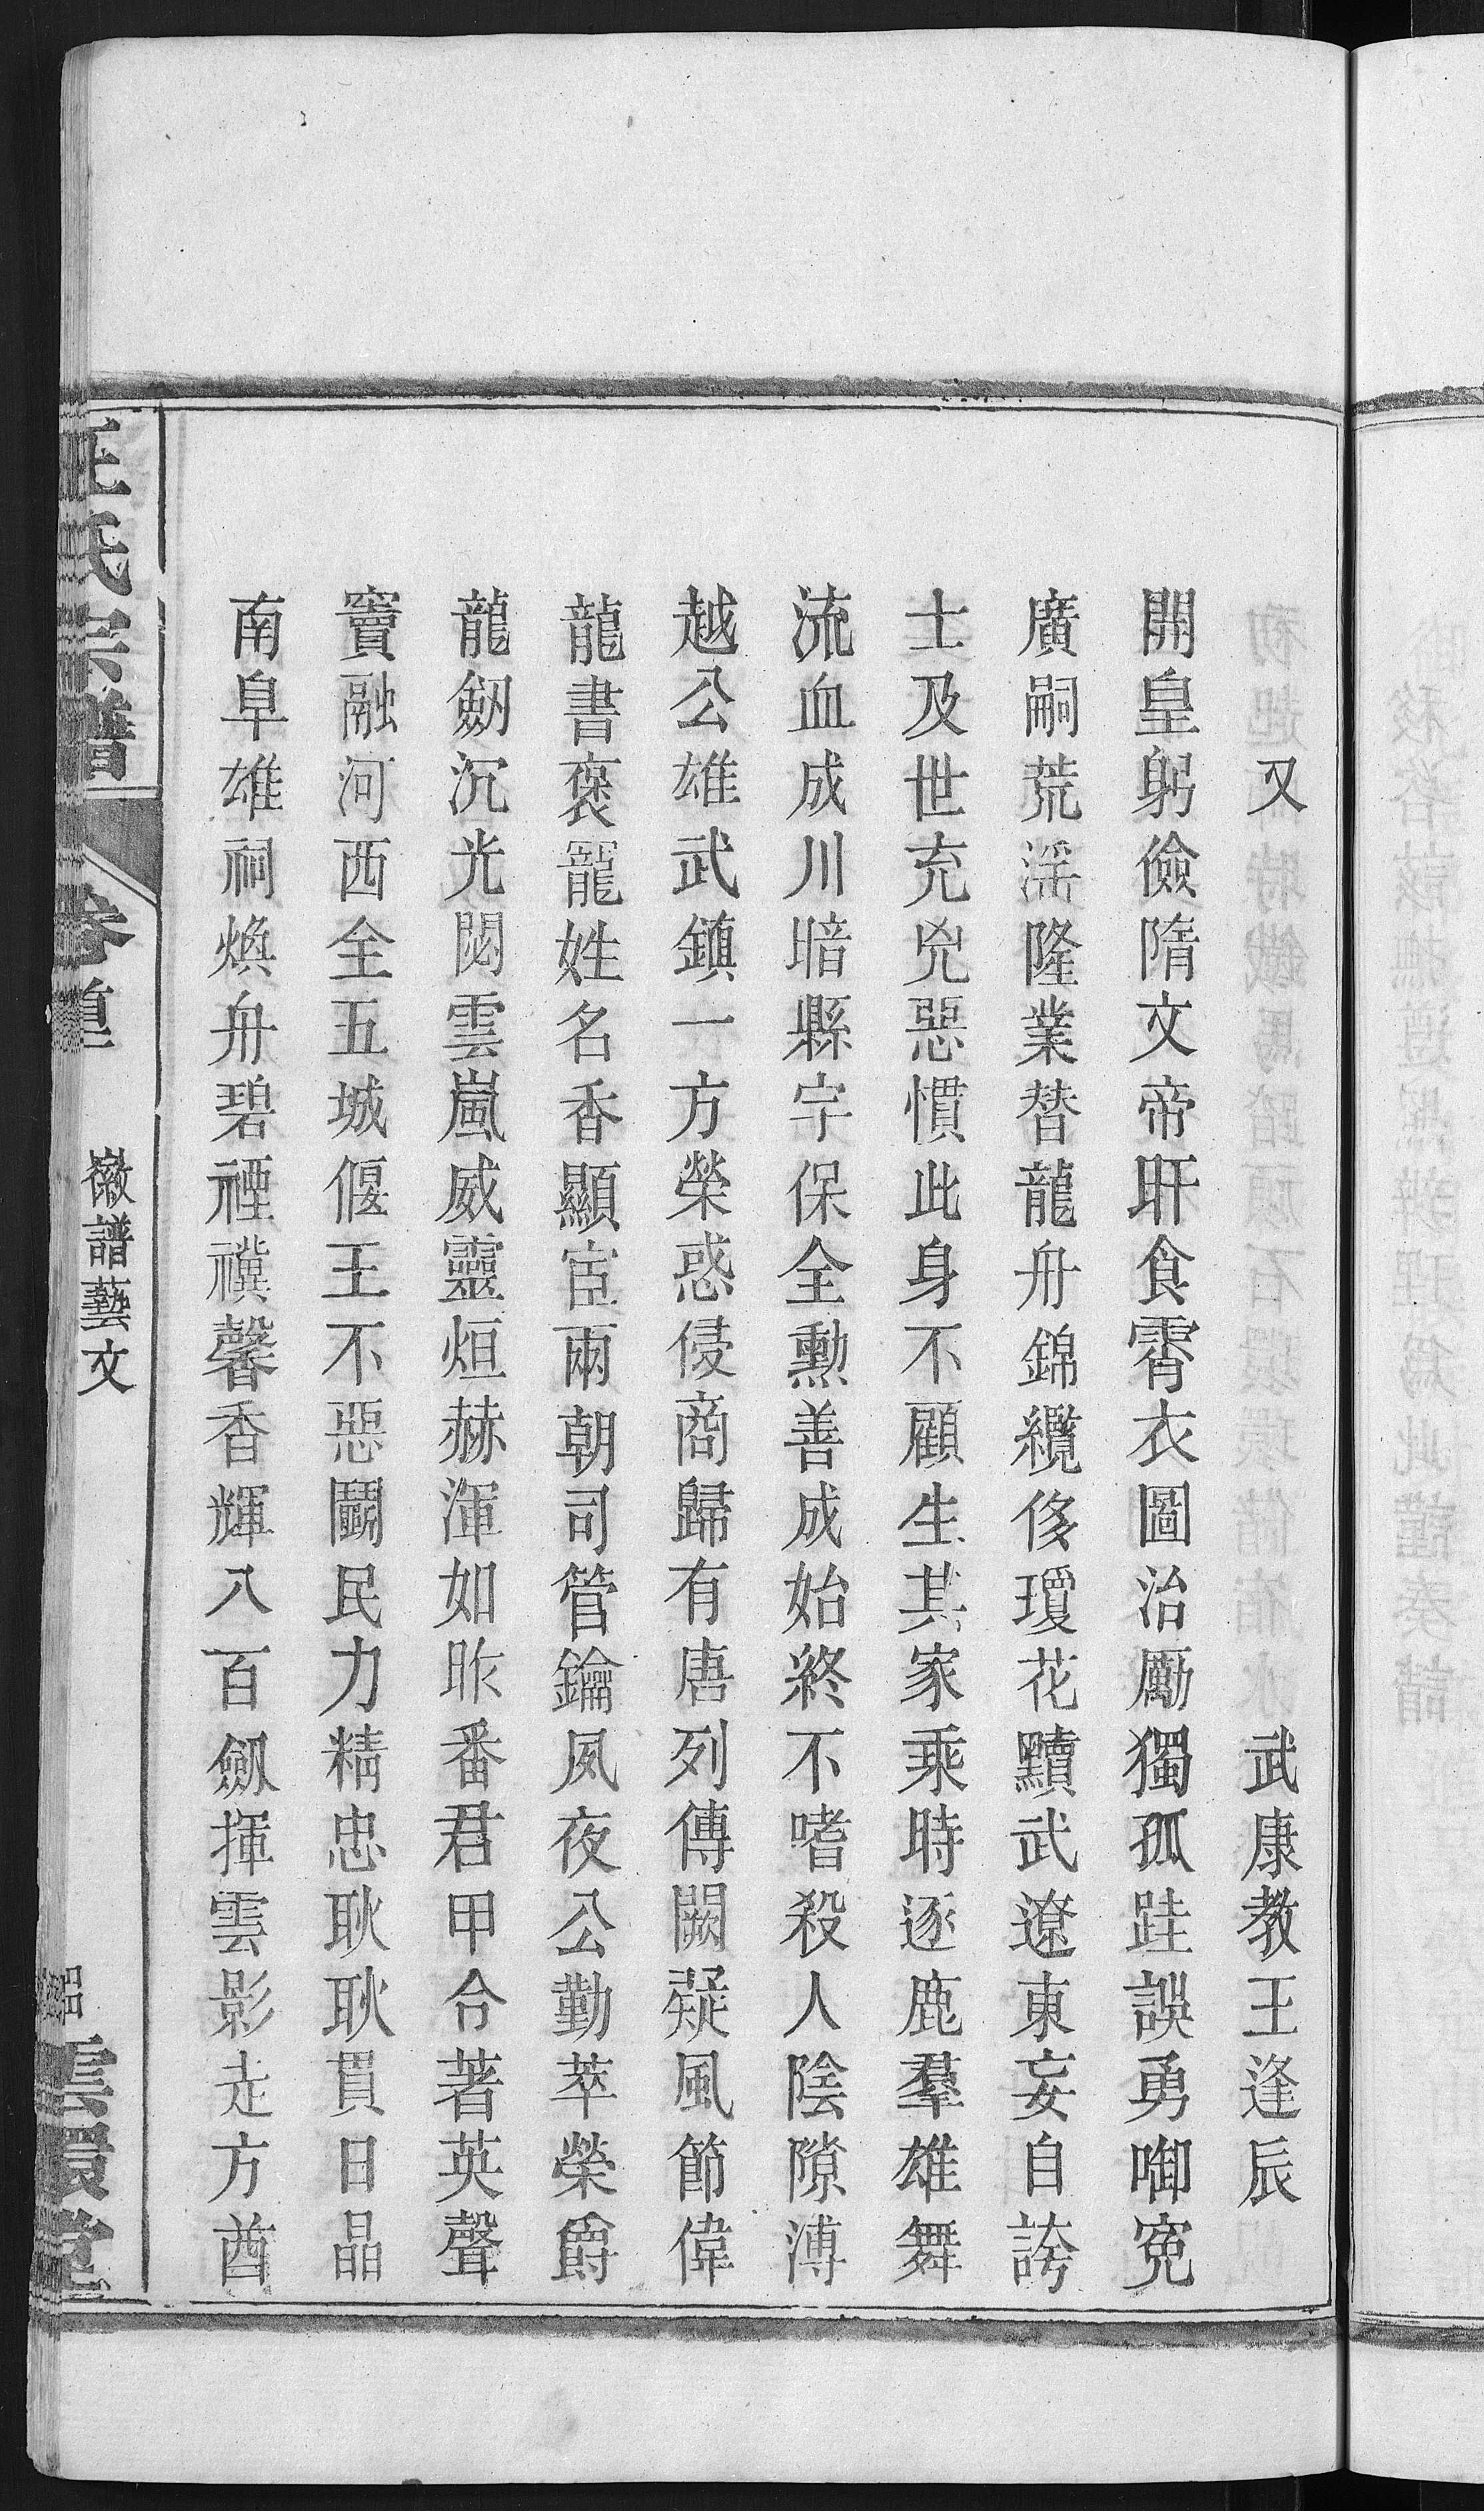 又　武康教王逢辰
開皇躬儉隋文帝旰食霄衣圖治勵獨孤詿誤勇啣寃
廣嗣荒淫隆業替龍舟錦纜侈瓊花黷武遼東妄自誇
士及世充兇惡慣此身不顧生其家乘時逐鹿羣雄舞
流血成川暗縣宇保全勳善成始終不嗜殺人陰隙溥
越公雄武鎮一方榮惑侵商歸有唐列傳闕疑風節偉
龍書褒寵姓名香顯宦兩朝司管鑰夙夜公勤萃榮爵
龍劒沉光閟雲嵐威靈烜赫渾如昨番君甲令著英聲
竇融河西全五城偃王不惡鬬民力精忠耿耿貫日晶
南阜雄祠煥舟碧禋禩馨香輝八百劒揮雲影走方酋
汪氏宗譜　卷首　徽譜藝文　雲環堂